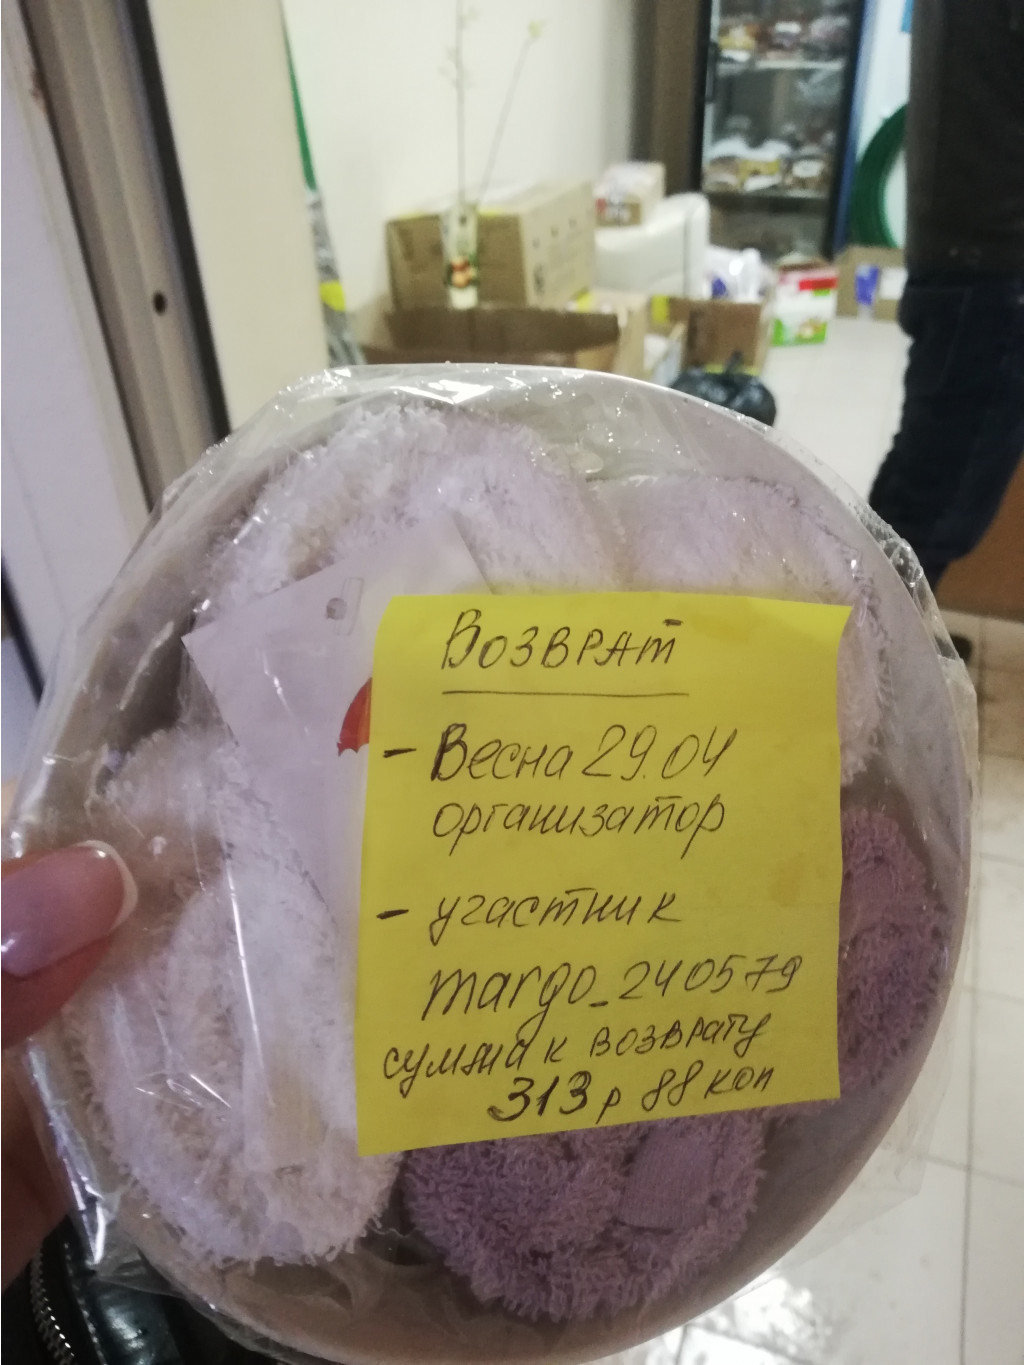 Возврат
- Весна 29.04
организатор
- участник
margo_240579
сумма к возврату
313 р 88 коп